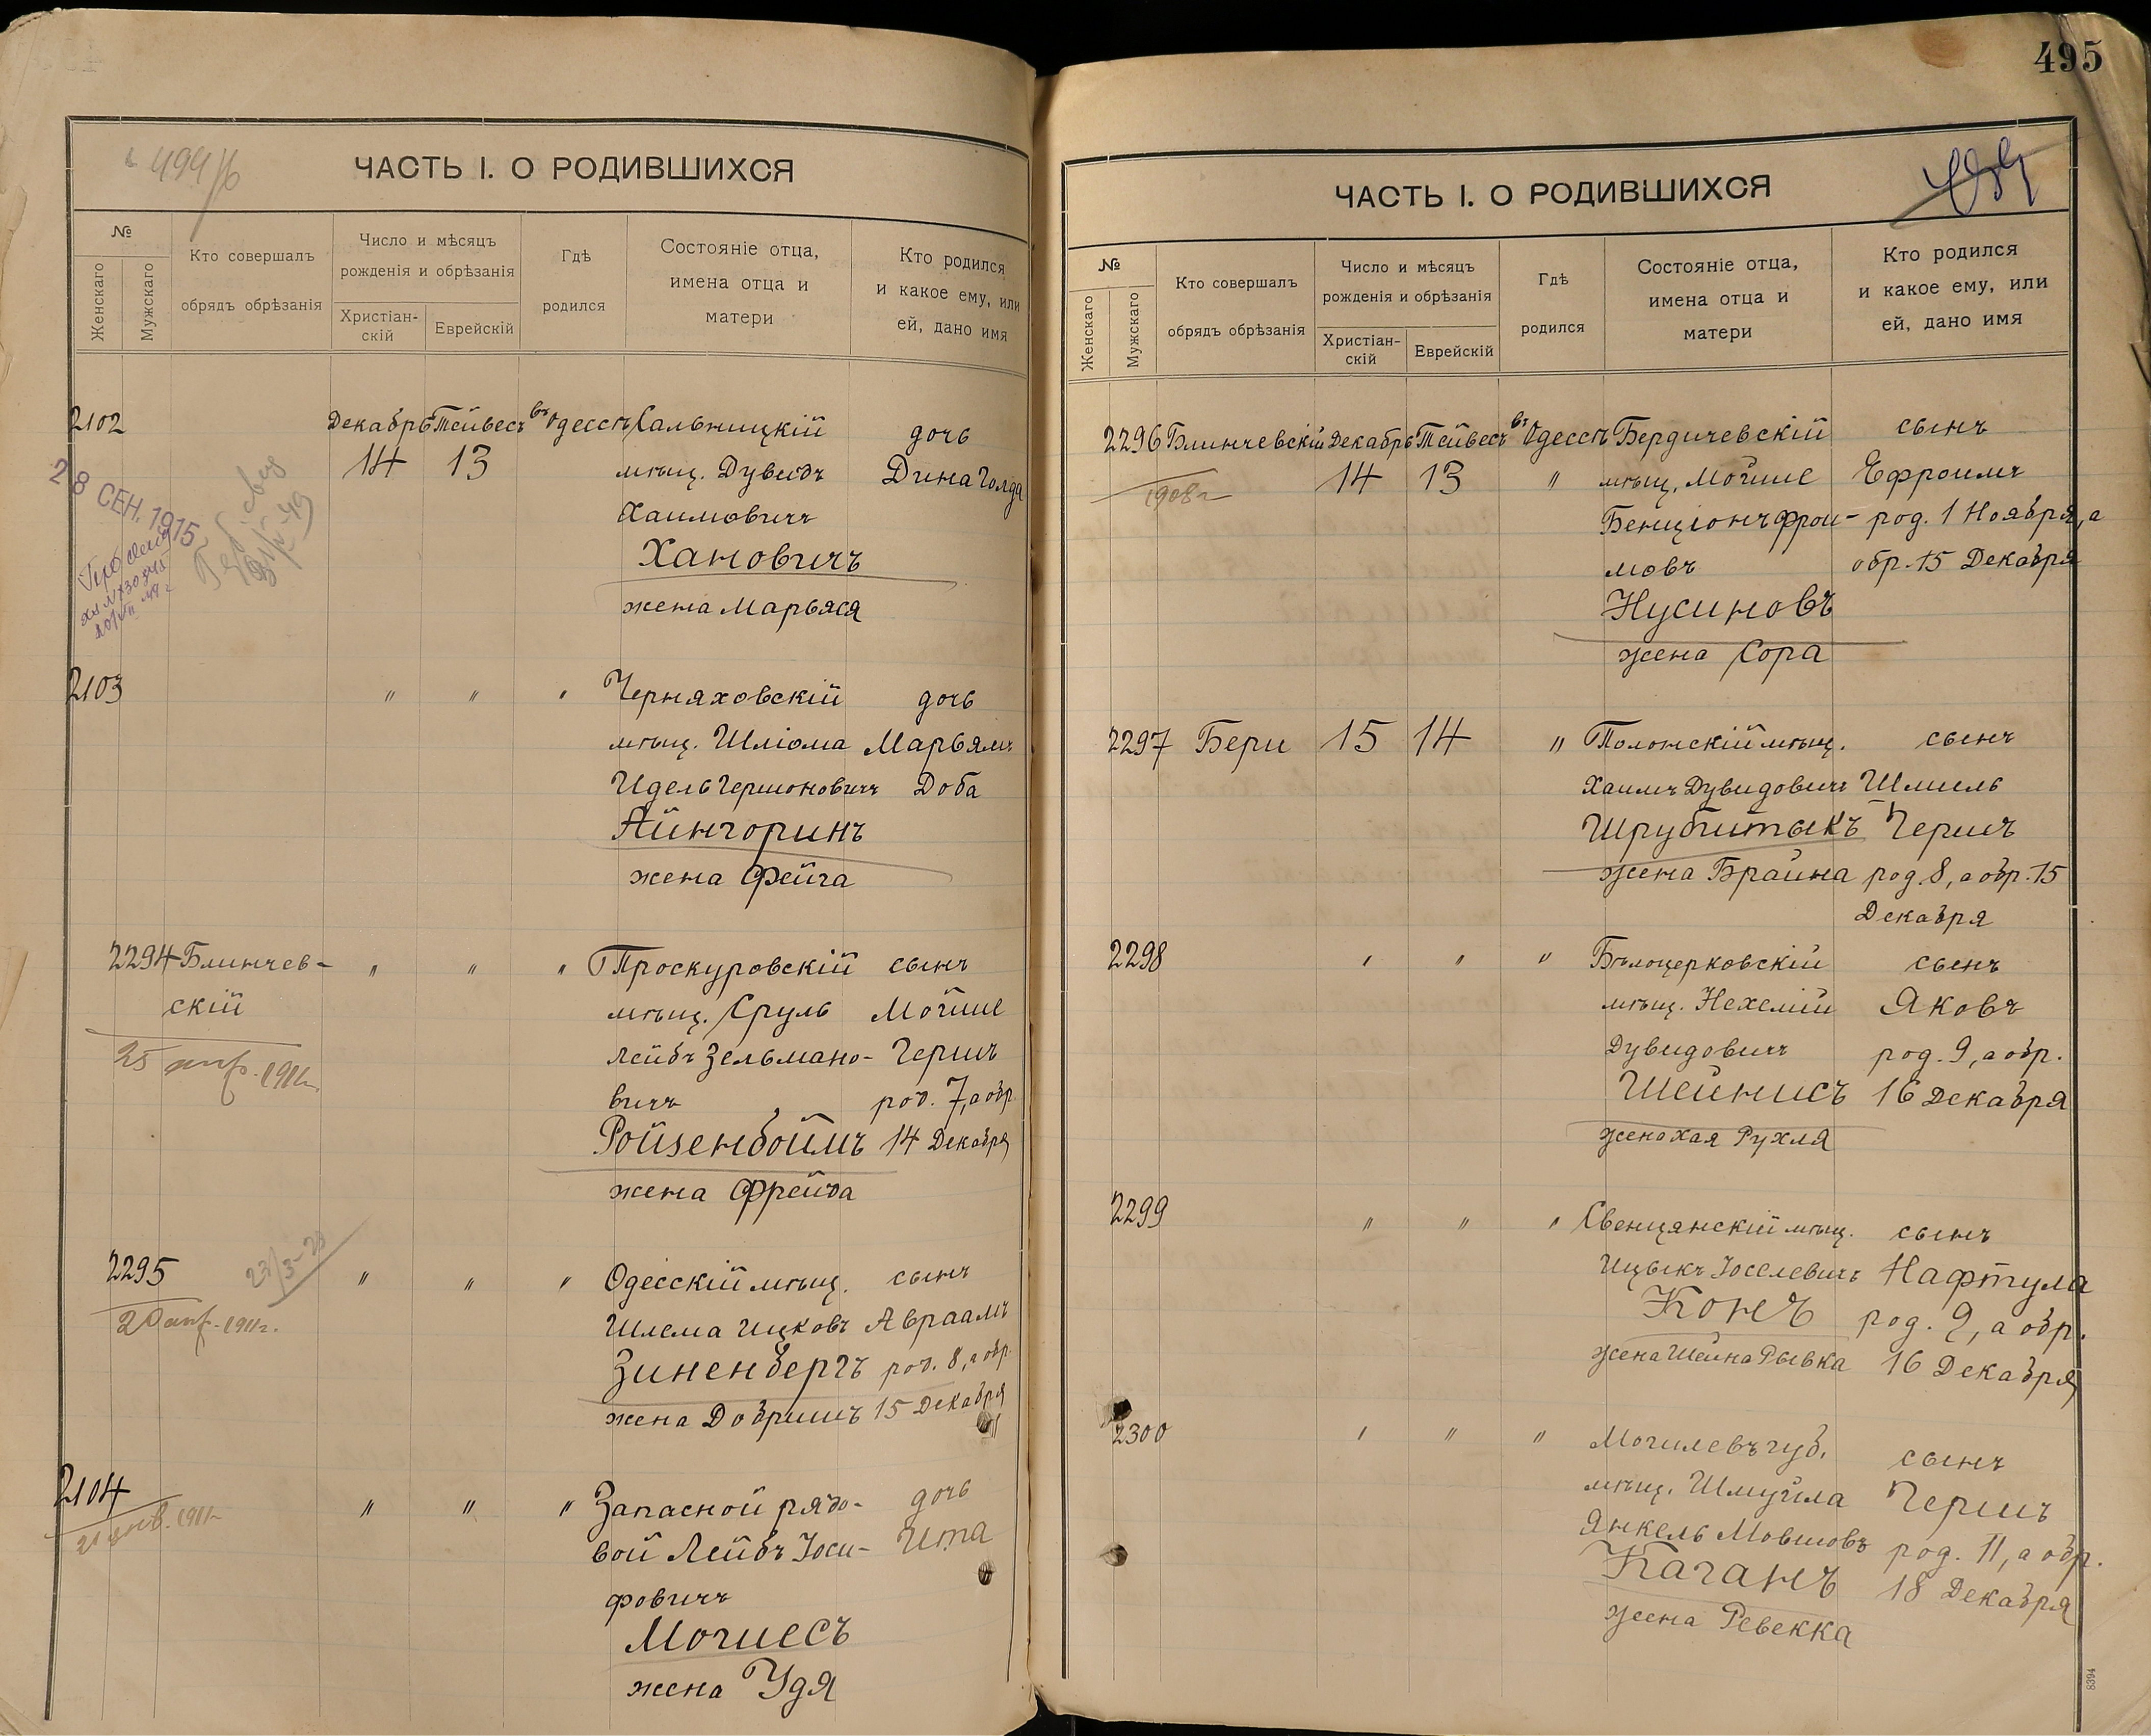 494
ЧАСТЬ I. О РОДИВШИХСЯ
№
Женскаго
Мужскаго
Кто совершалъ
обрядъ обрѣзанія
Число и мѣсяцъ
рожденія и обрѣзанія
Христіан-
скій
Еврейскій
Гдѣ
родился
Состояніе отца,
имена отца и
матери
Кто родился
и какое ему, или
ей, дано имя
2102 Декабрь Тейвесъ въ Одессѣ Сальницкій дочь
14 13 мѣщ. Дувидъ Дина Голда
Хаимовичъ
Хановичъ
жена Марьяся
28 СЕН. 1915
2103 " " " Черняховскій дочь
мѣщ. Шліома Марьямъ
Идель Гершоновичъ Доба
Айнгоринъ
жена Фейга
2294 Блинчев- " " " Проскуровскій сынъ
скій мѣщ. Сруль Мойше
Лейбъ Зельмано- Гершъ
вичъ род. 7, а обр.
Ройзенбоймъ 14 Декабря
жена Фрейда
25 1911г.
2295 " " " Одесскій мѣщ. сынъ
23/3-23
20 1911г.
Шлема Ицковъ Авраамъ
Зиненбергъ род. 8, а обр.
жена Добришъ 15 Декабря
2104 " " " Запасной рядо- дочь
21 янв. 1911г
вой Лейбъ Іоси- Ита
фовичъ
Могиесъ
жена Удя
495
ЧАСТЬ I. О РОДИВШИХСЯ
№
Женскаго
Мужскаго
Кто совершалъ
обрядъ обрѣзанія
Число и мѣсяцъ
рожденія и обрѣзанія
Христіан-
скій
Еврейскій
Гдѣ
родился
Состояніе отца,
имена отца и
матери
Кто родился
и какое ему, или
ей, дано имя
2296 Блинчевскій Декабрь Тейвесъ въ Одессѣ Бердичевскій сынъ
1908г 14 13 " мѣщ. Мойше Ефроимъ
Бенціонъ Фрои- род. 1 Ноября, а
мовъ обр. 15 Декабря
Нусиновъ
жена Сора
2297 Бери 15 14 " Полонскій мѣщ. сынъ
Хаимъ Дувидовичъ Шмиль
Шрубитыкъ Гершъ
жена Брайна род. 8, а обр. 15
Декабря
2298 " " " Бѣлоцерковскій сынъ
мѣщ. Нехемій Яковъ
Дувидовичъ род. 9, а обр.
Шейнисъ 16 Декабря
жена Хая Рухля
2299 " " " Свенцянскій мѣщ. сынъ
Ицыкъ Іоселевичъ Нафтула
Конъ род. 9, а обр.
жена Шейна Рывка 16 Декабря
2300 " " " Могилевъ губ. сынъ
мѣщ. Шмуйла Гершъ
Янкель Мовшовъ род. 11, а обр.
Каганъ 18 Декабря
жена Ревекка
8394